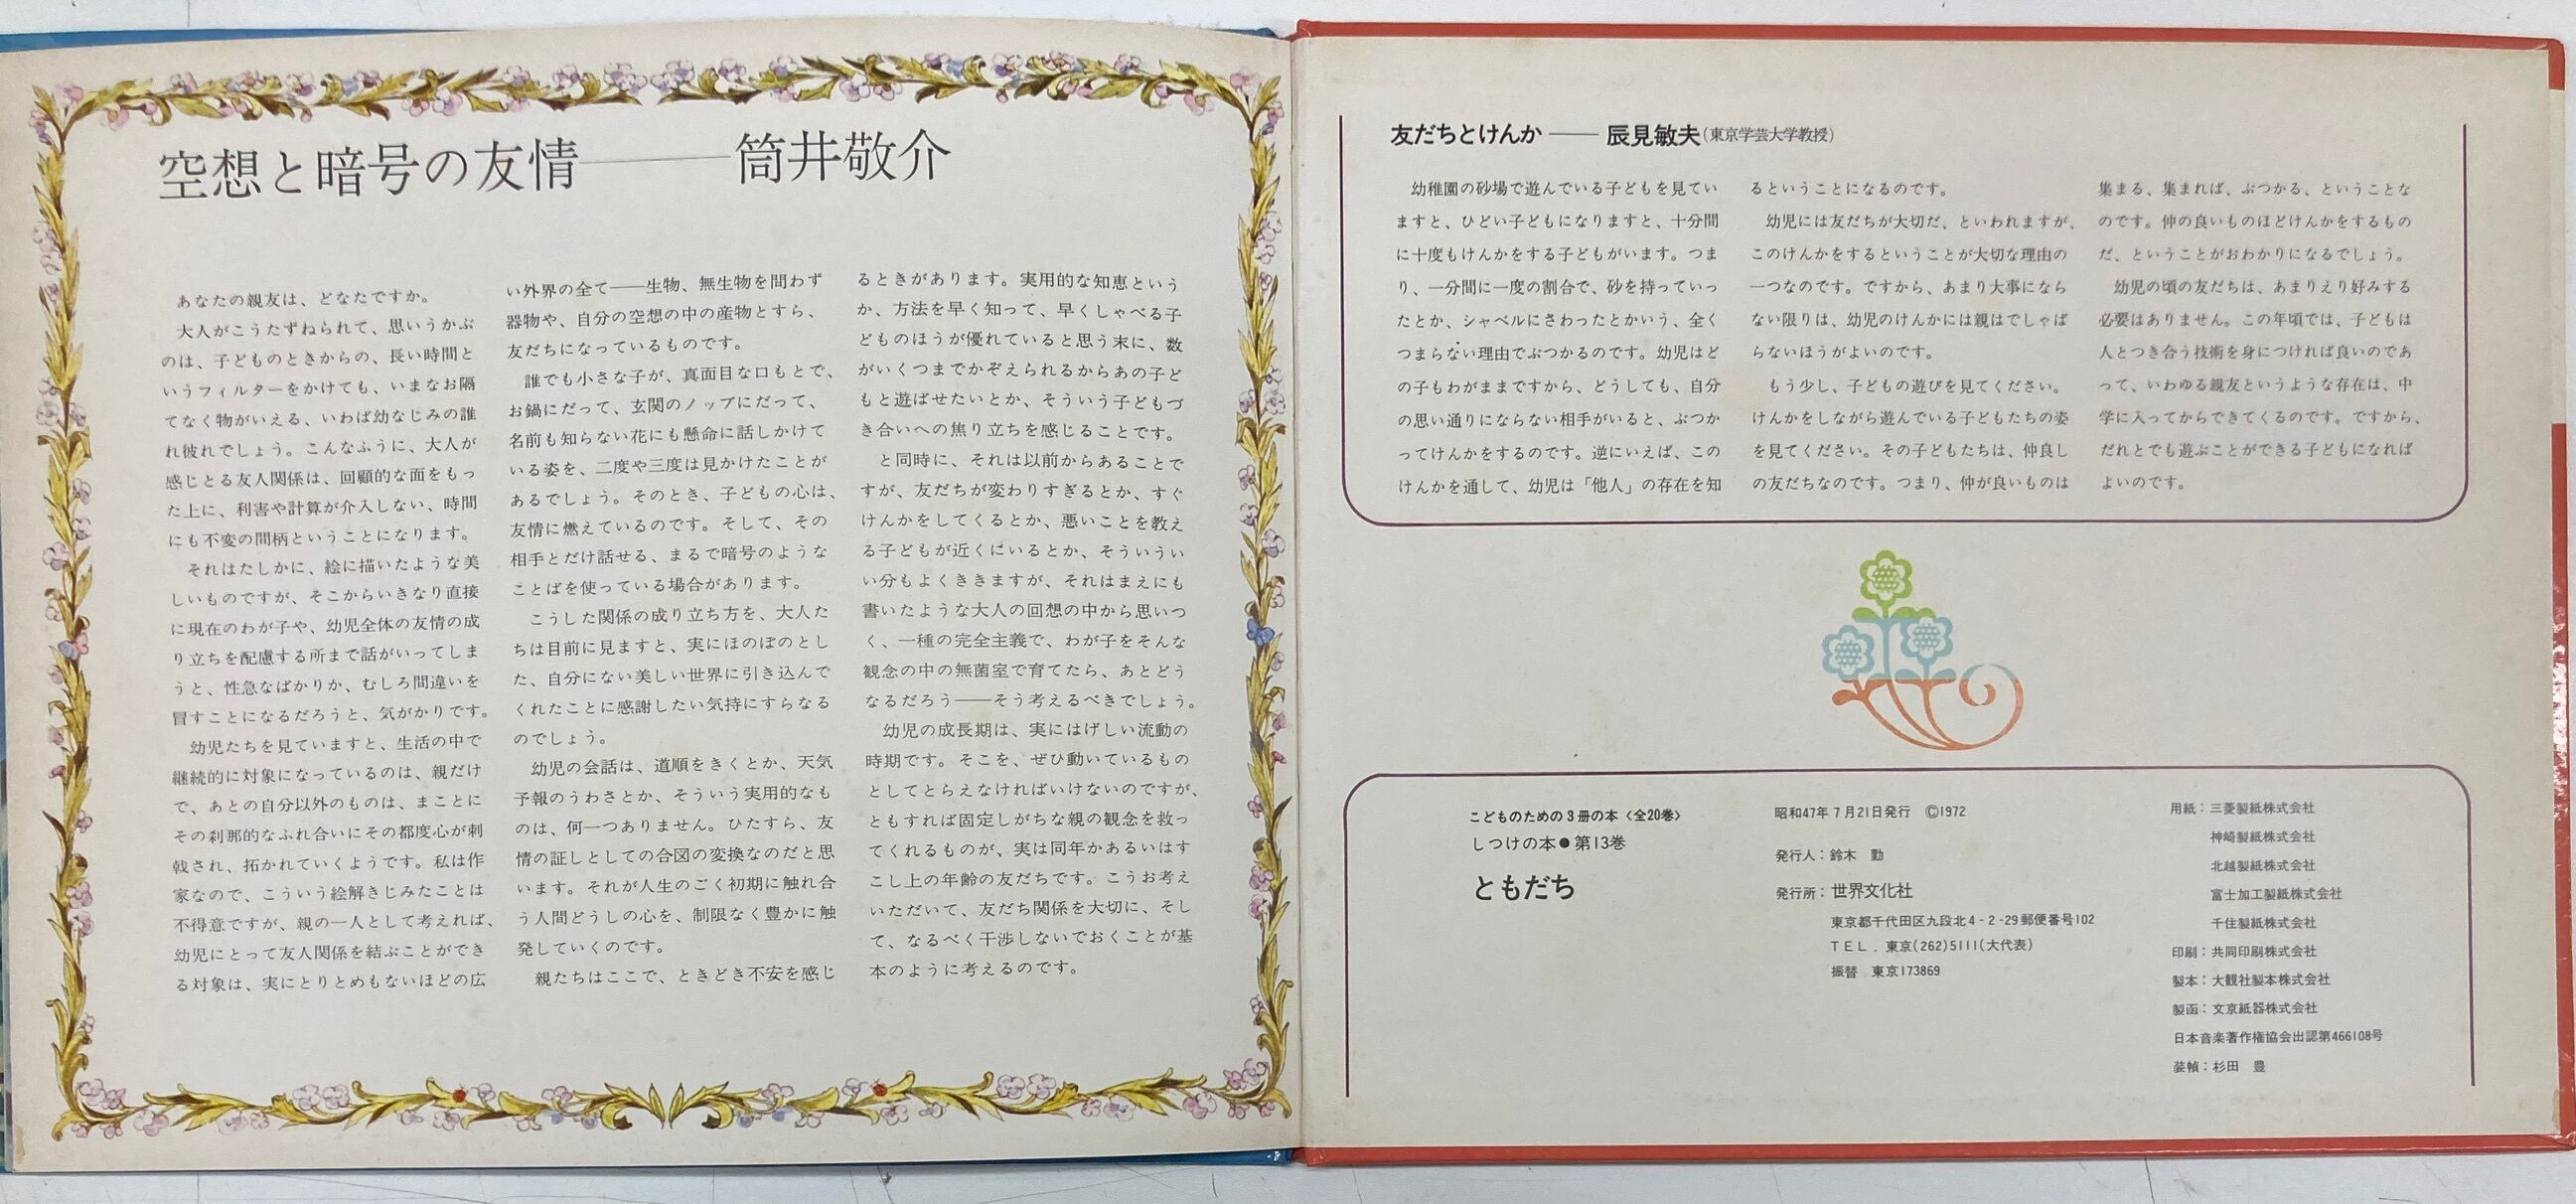 空想と暗号の友情――筒井敬介
あなたの親友は、どなたですか。
大人がこうたずねられて、思いうかぶ
のは、子どものときからの、長い時間と
いうフィルターをかけても、いまなお隔
てなく物がいえる、いわば幼なじみの誰
れ彼れでしょう。こんなふうに、大人が
感じとる友人関係は、回顧的な面をもっ
た上に、利害や計算が介入しない、時間
にも不変の間柄ということになります。
それはたしかに、絵に描いたような美
しいものですが、そこからいきなり直接
に現在のわが子や、幼児全体の友情の成
り立ちを配慮する所まで話がいってしま
うと、性急なばかりか、むしろ間違いを
冒すことになるだろうと、気がかりです。
幼児たちを見ていますと、生活の中で
継続的に対象になっているのは、親だけ
で、あとの自分以外のものは、まことに
その刹那的なふれ合いにその都度心が刺
戟され、拓かれていくようです。私は作
家なので、こういう絵解きじみたことは
不得意ですが、親の一人として考えれば、
幼児にとって友人関係を結ぶことができ
る対象は、実にとりとめもないほどの広
い外界の全て――生物、無生物を問わず
器物や、自分の空想の中の産物とすら、
友だちになっているものです。
誰でも小さな子が、真面目な口もとで、
お鍋にだって、玄関のノッブにだって、
名前も知らない花にも懸命に話しかけて
いる姿を、二度や三度は見かけたことが
あるでしょう。そのとき、子どもの心は、
友情に燃えているのです。そして、その
相手とだけ話せる、まるで暗号のような
ことばを使っている場合があります。
こうした関係の成り立ち方を、大人た
ちは目前に見ますと、実にほのぼのとし
た、自分にない美しい世界に引き込んで
くれたことに感謝したい気持にすらなる
のでしょう。
幼児の会話は、道順をきくとか、天気
予報のうわさとか、そういう実用的なも
のは、何一つありません。ひたすら、友
情の証しとしての合図の変換なのだと思
います。それが人生のごく初期に触れ合
う人間どうしの心を、制限なく豊かに触
発していくのです。
親たちはここで、ときどき不安を感じ
るときがあります。実用的な知恵という
か、方法を早く知って、早くしゃべる子
どものほうが優れていると思う末に、数
がいくつまでかぞえられるからあの子ど
もと遊ばせたいとか、そういう子どもづ
き合いへの焦り立ちを感じることです。
と同時に、それは以前からあることで
すが、友だちが変わりすぎるとか、すぐ
けんかをしてくるとか、悪いことを教え
る子どもが近くにいるとか、そういうい
い分もよくききますが、それはまえにも
書いたような大人の回想の中から思いつ
く、一種の完全主義で、わが子をそんな
観念の中の無菌室で育てたら、あとどう
なるだろう――そう考えるべきでしょう。
幼児の成長期は、実にはげしい流動の
時期です。そこを、ぜひ動いているもの
としてとらえなければいけないのですが、
ともすれば固定しがちな親の観念を救っ
てくれるものが、実は同年かあるいはす
こし上の年齢の友だちです。こうお考え
いただいて、友だち関係を大切に、そし
て、なるべく干渉しないでおくことが基
本のように考えるのです。
友だちとけんか――辰見敏夫(東京学芸大学教授)
幼稚園の砂場で遊んでいる子どもを見てい
ますと、ひどい子どもになりますと、十分間
に十度もけんかをする子どもがいます。つま
り、一分間に一度の割合で、砂を持っていっ
たとか、シャベルにさわったとかいう、全く
つまらない理由でぶつかるのです。幼児はど
の子もわがままですから、どうしても、自分
の思い通りにならない相手がいると、ぶつか
ってけんかをするのです。逆にいえば、この
けんかを通して、幼児は「他人」の存在を知
るということになるのです。
幼児には友だちが大切だ、といわれますが、
このけんかをするということが大切な理由の
一つなのです。ですから、あまり大事になら
ない限りは、幼児のけんかには親はでしゃば
らないほうがよいのです。
もう少し、子どもの遊びを見てください。
けんかをしながら遊んでいる子どもたちの姿
を見てください。その子どもたちは、仲良し
の友だちなのです。つまり、仲が良いものは
集まる、集まれば、ぶつかる、ということな
のです。仲の良いものほどけんかをするもの
だ、ということがおわかりになるでしょう。
幼児の頃の友だちは、あまりえり好みする
必要はありません。この年頃では、子どもは
人とつき合う技術を身につければ良いのであ
って、いわゆる親友というような存在は、中
学に入ってからできてくるのです。ですから、
だれとでも遊ぶことができる子どもになれば
よいのです。
こどものための3冊の本〈全20巻〉
しつけの本●第13巻
ともだち
昭和47年7月21日発行 ©1972
発行人：鈴木 勤
発行所：世界文化社
東京都千代田区九段北4-2-29郵便番号102
TEL．東京(262)5111(大代表)
振替 東京173869
用紙：三菱製紙株式会社
神崎製紙株式会社
北越製紙株式会社
富士加工製紙株式会社
千住製紙株式会社
印刷：共同印刷株式会社
製本：大観社製本株式会社
製函：文京紙器株式会社
日本音楽著作権協会出認第466108号
装幀：杉田 豊